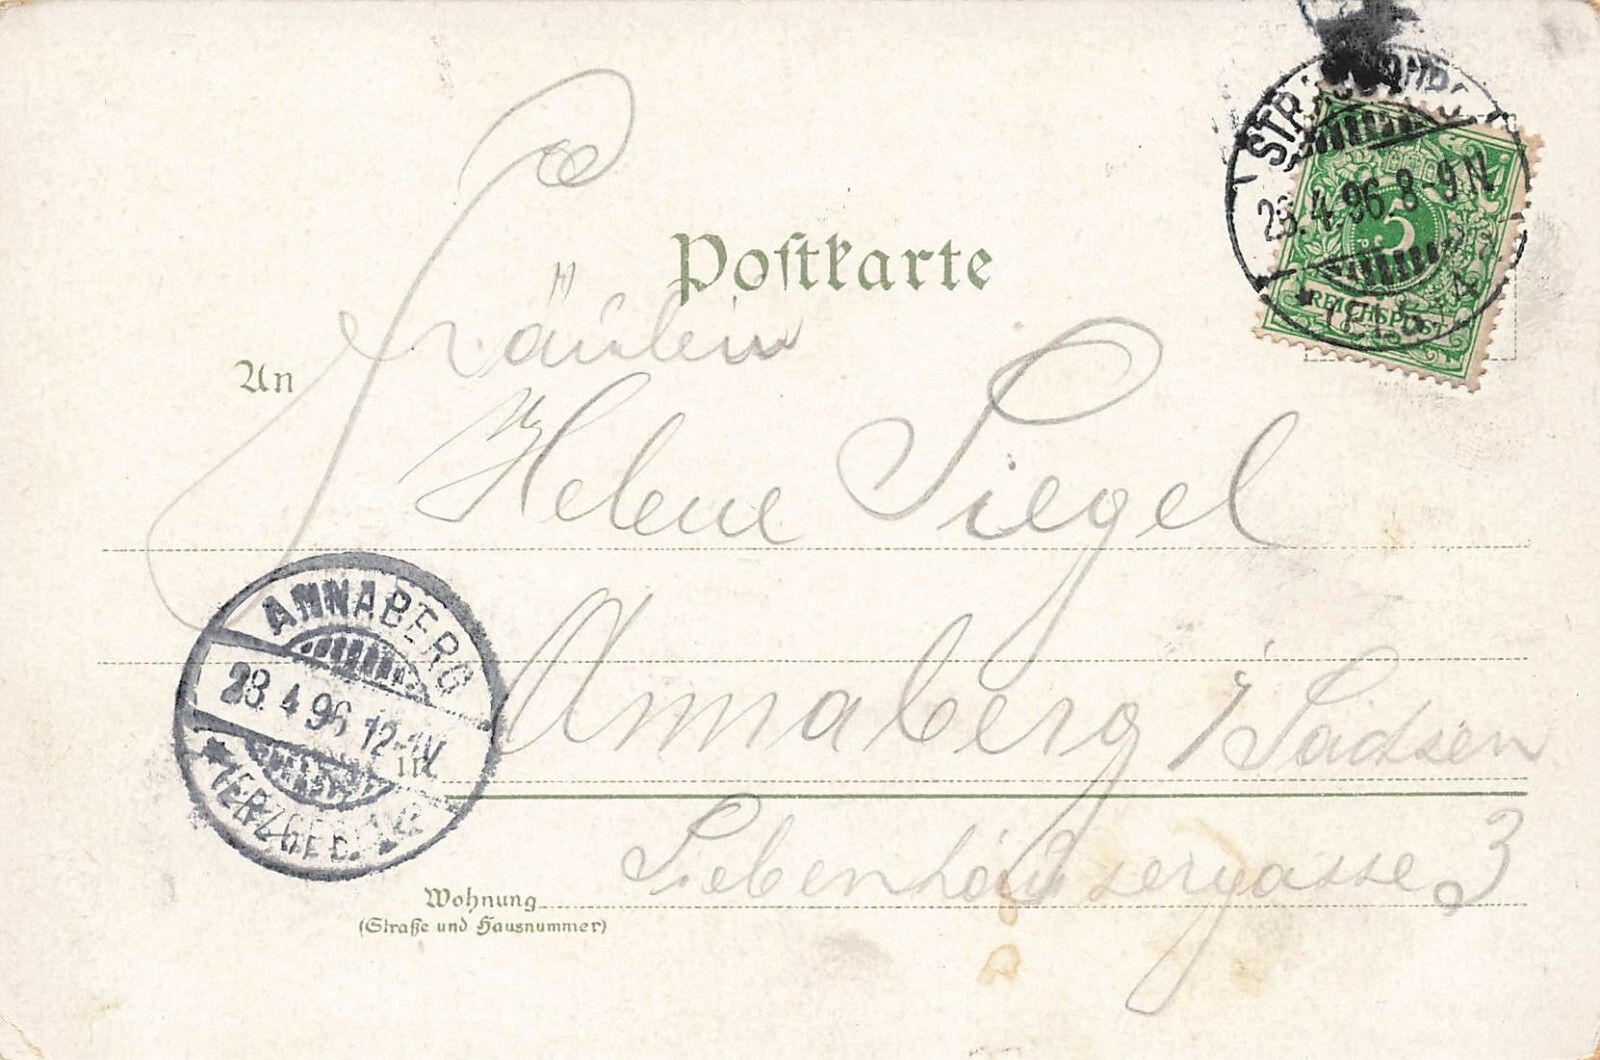 Postkarte
An Fräulein
Helene Siegel
in Annaberg / Sachsen
Siebenhäusergasse 3
Wohnung
(Straße und Hausnummer)
4.96.8-9N
5
REICHSPOST
ANNABERG
28.4.96 12-1N